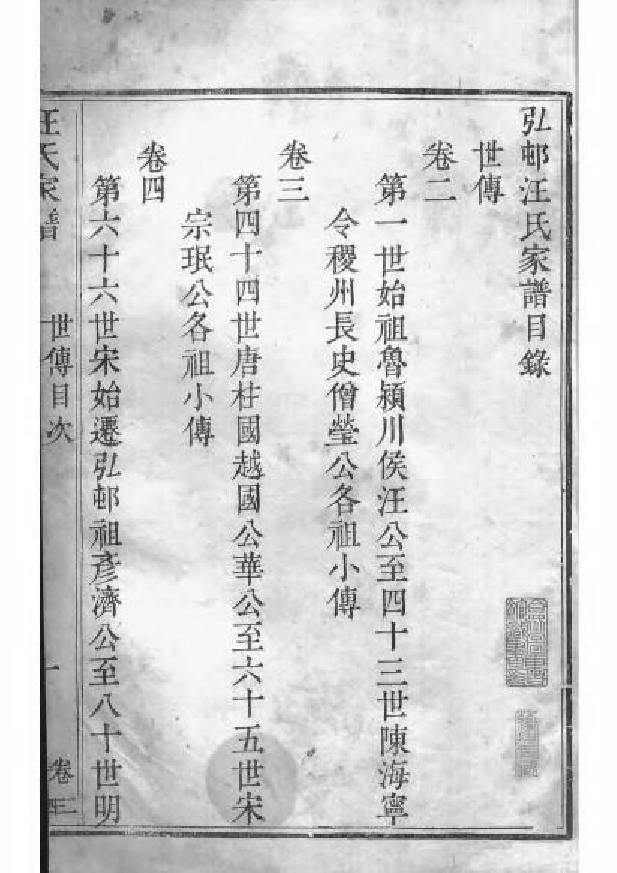 弘邨汪氏家譜目錄
世傳
卷二
第一世始祖魯潁川侯汪公至四十三世陳海寧
令稷州長史僧瑩公各祖小傳
卷三
第四十四世唐柱國越國公華公至六十五世宋
宗珉公各祖小傳
卷四
第六十六世宋始遷弘邨祖彥濟公至八十世明
汪氏家譜
世傳目次
一
卷